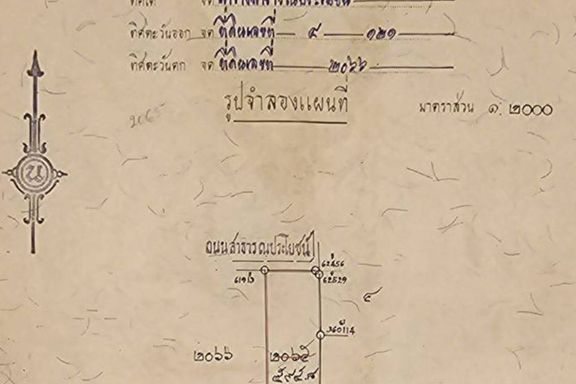 ทิศตะวันออก จด ที่ดินเลขที่ ๔ ๑๒๑
ทิศตะวันตก จด ที่ดินเลขที่ ๒๐๖๖
รูปจำลองแผนที่ มาตราส่วน ๑:๒๐๐๐
2065
น
ถนนสาธารณประโยชน์
62456
62529
๔
๒๐๖๖ ๒๐๖๕